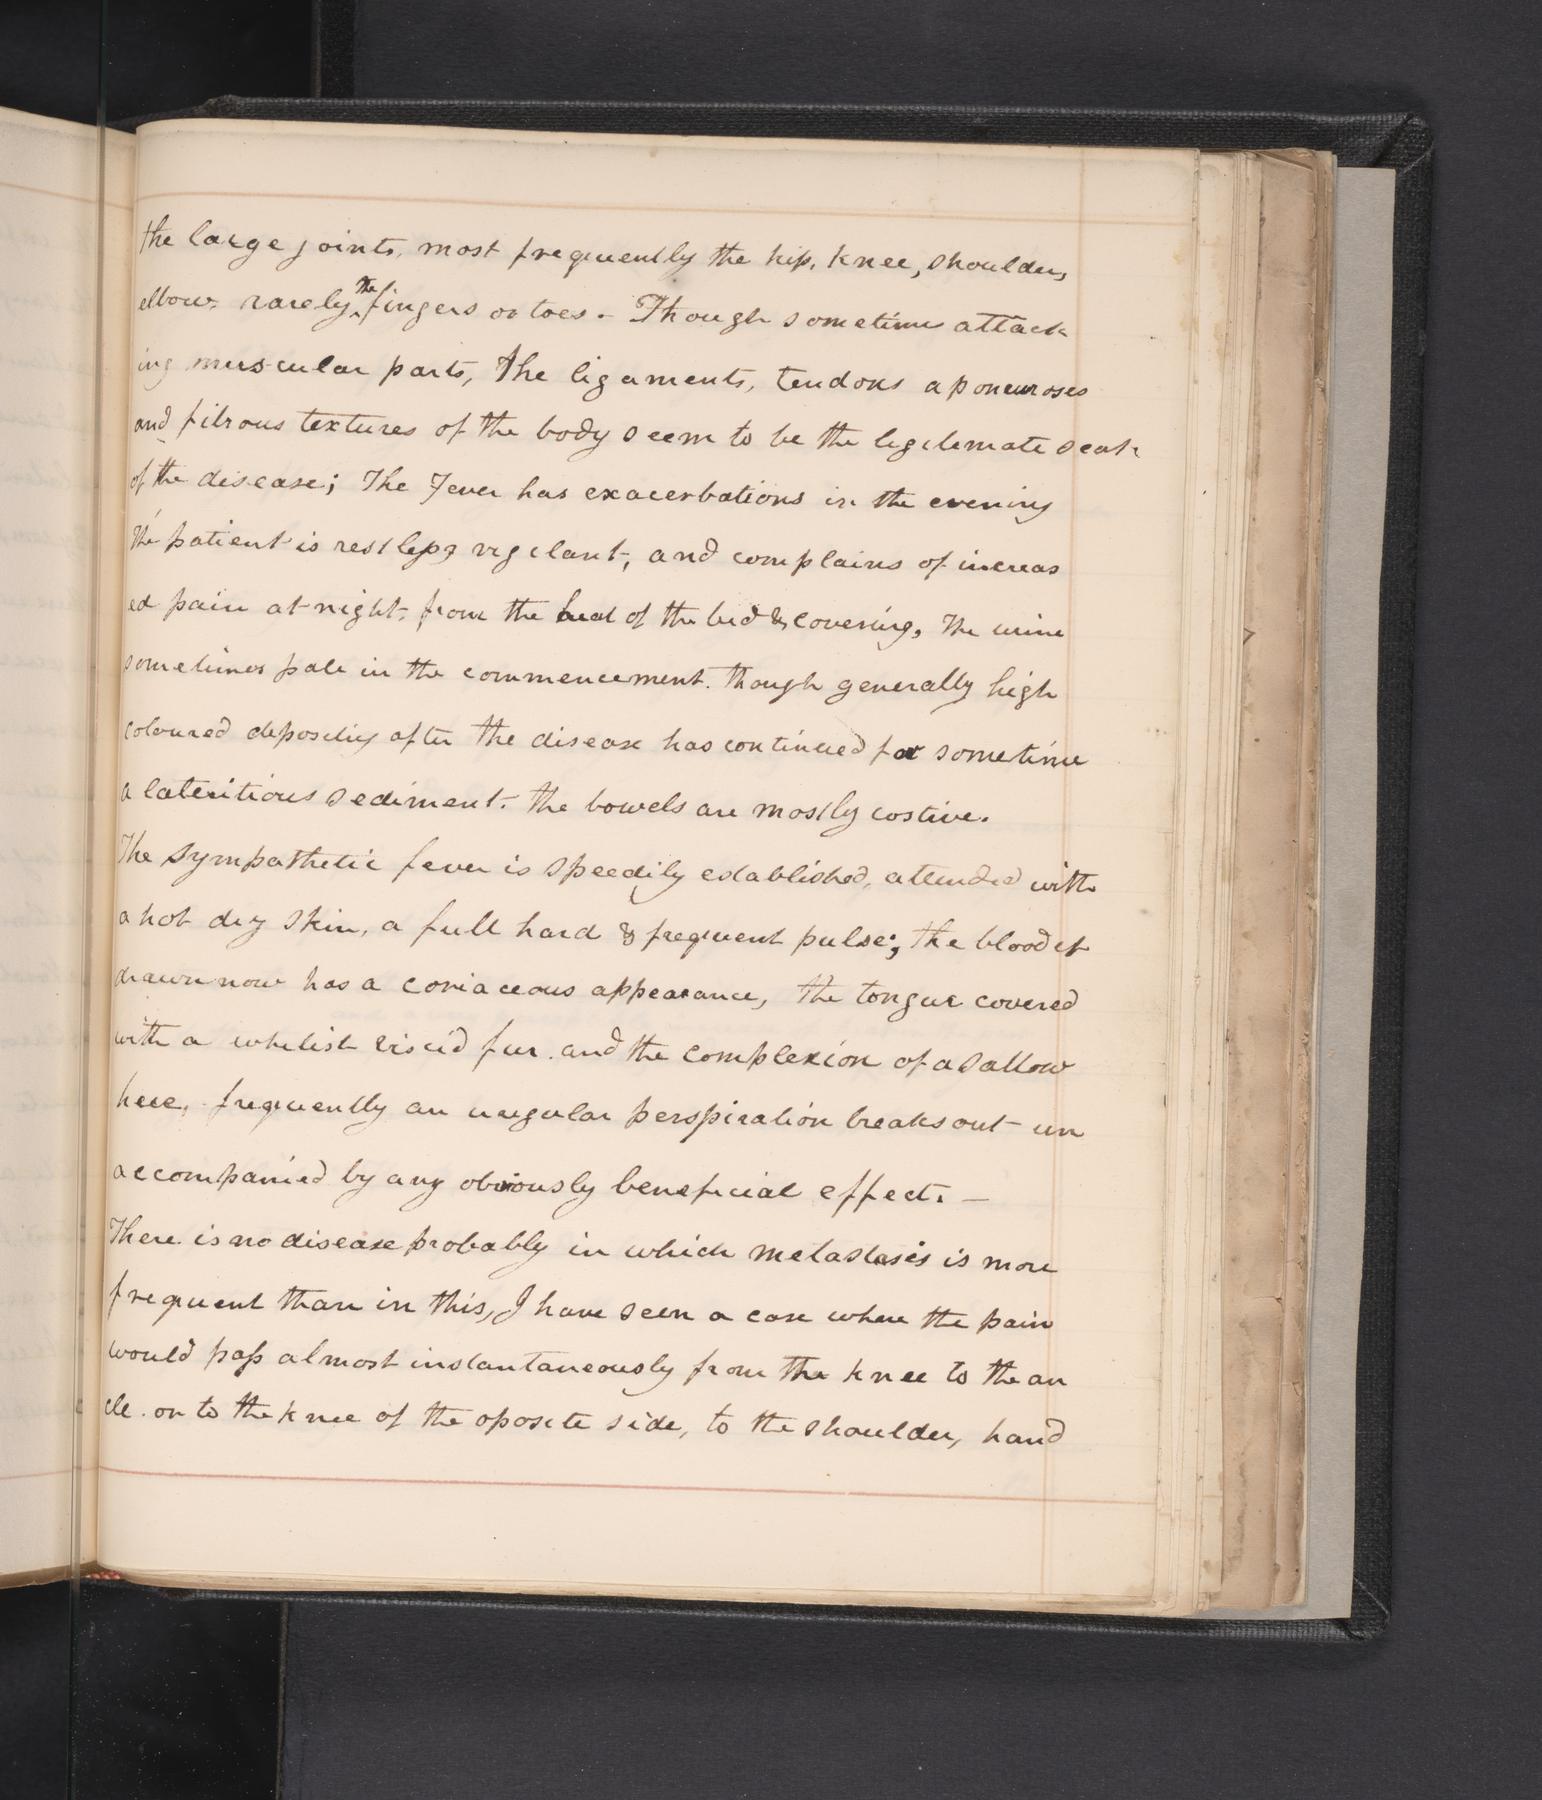 the large joints, most frequently the hip, knee, shoulder,
elbow, rarely the fingers or toes. - Though sometimes attack
ing muscular parts, the ligaments, tendons aponeuroses
and fibrous textures of the body seem to be the legitimate seat
of the disease; The Fever has exacerbations in the evening
The patient is restless, vigilant, and complains of increas
ed pain at night, from the heat of the bed & covering, The urine
sometimes pale in the commencement. though generally high
coloured depositing after the disease has continued for sometime
a lateritious sediment. the bowels are mostly costive.
The Sympathetic fever is speedily established, attended with
a hot dry skin, a full hard & frequent pulse; the blood if
drawn now has a coriaceous appearance, the tongue covered
with a whitish viscid fur. and the complexion of a sallow
huee, frequently an irregular perspiration breaks out un
accompanied by any obviously beneficial effect. —
There is no disease probably in which metastasis is more
frequent than in this, I have seen a case where the pain
would pass almost instantaneously from the knee to the an
cle. or to the knee of the oposite side, to the shoulder, hand